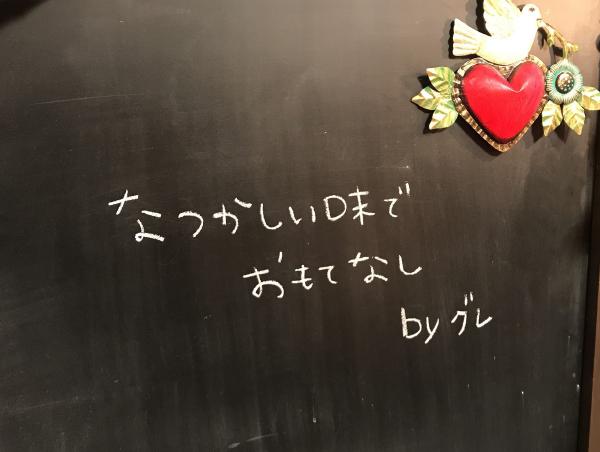 なつかしい味で
おもてなし
by グレ